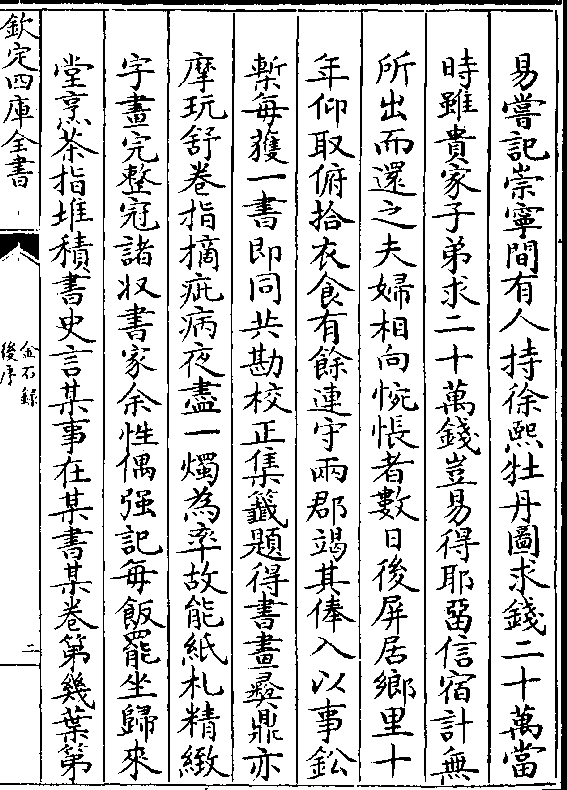 易嘗記崇寧間有人持徐熙牡丹圖求錢二十萬當
時雖貴家子弟求二十萬錢豈易得耶畱信宿計無
所出而還之夫婦相向惋悵者數日後屏居鄉里十
年仰取俯拾衣食有餘連守兩郡竭其俸入以事鉛
槧每獲一書即同共勘校正集籖題得書畫彞鼎亦
摩玩舒卷指摘疵病夜盡一燭為率故能紙札精緻
字畫完整冠諸收書家余性偶强記每飯罷坐歸來
堂烹茶指堆積書史言某事在某書某卷第幾葉第
欽定四庫全書
金石錄
後序
二